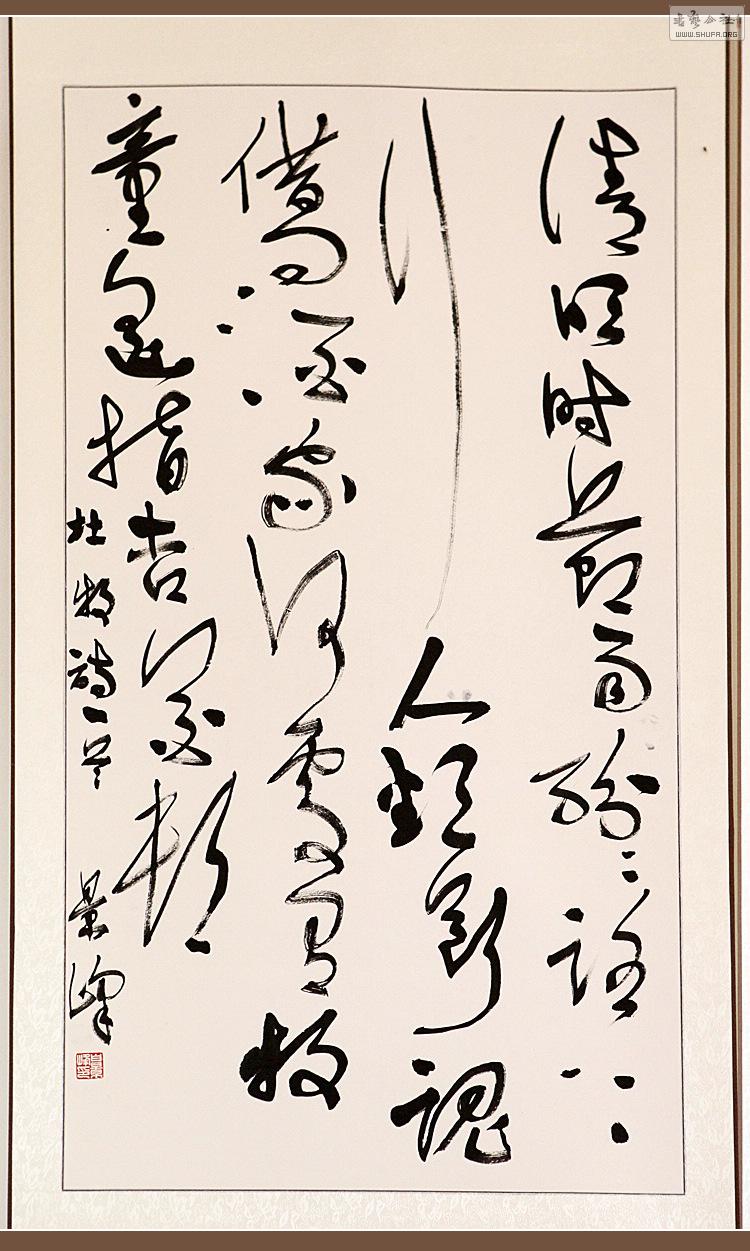 清明时节雨纷纷路上
行人欲断魂
借问酒家何处有牧
童遥指杏花村
杜牧诗一首 景峰
书艺公社
WWW.SHUFA.ORG